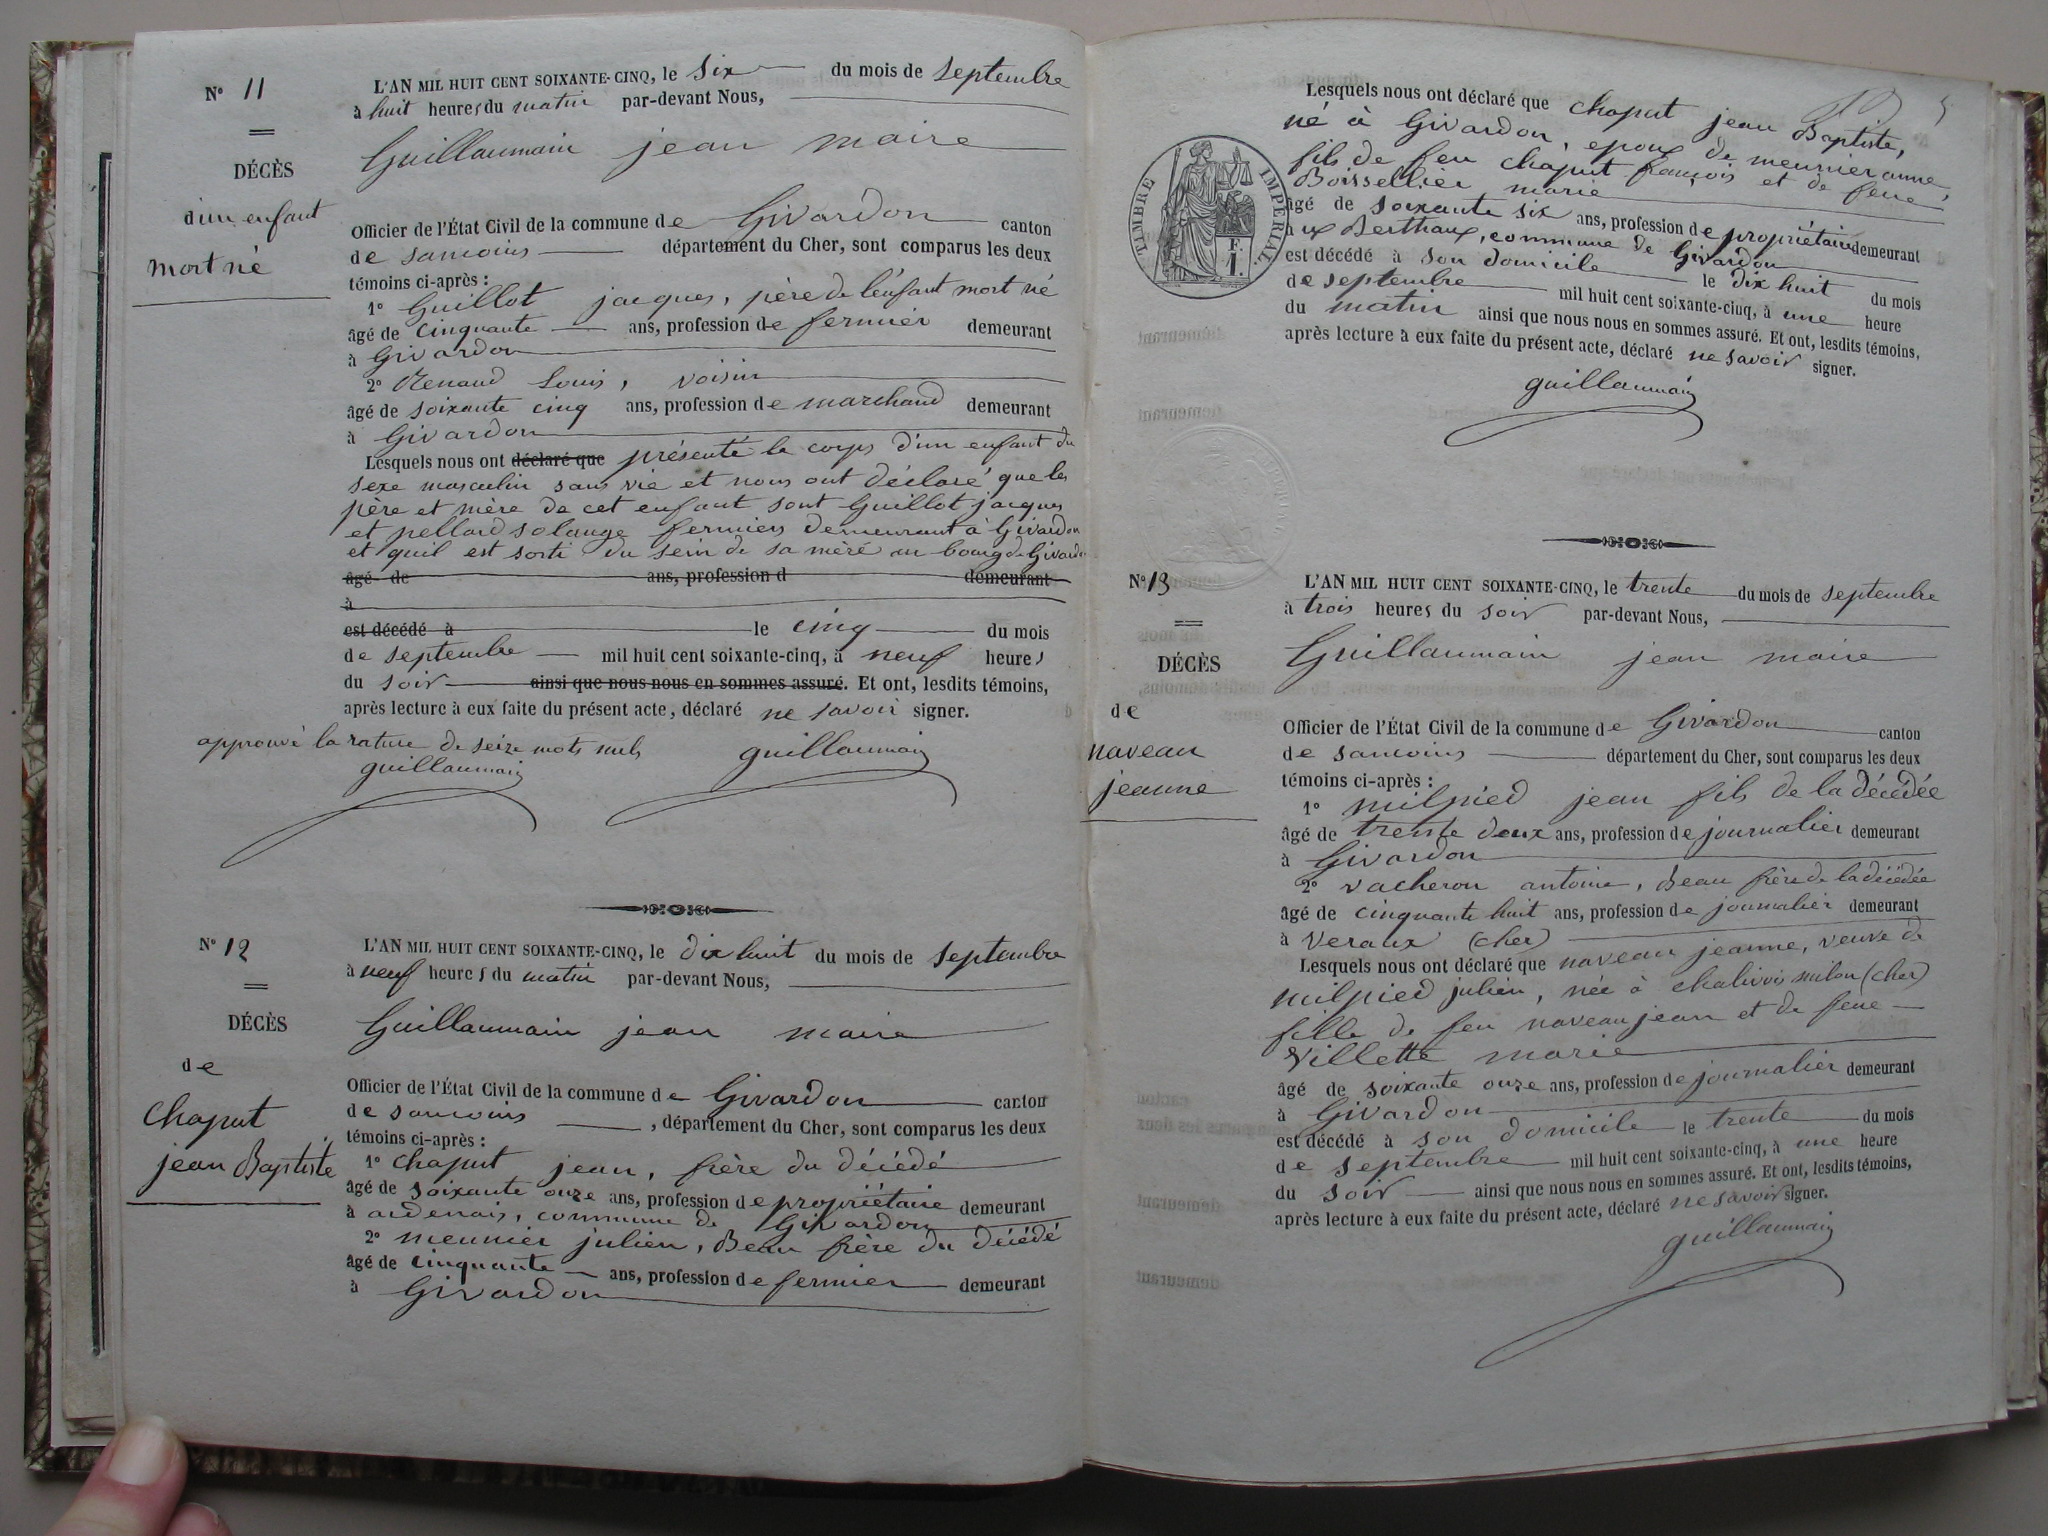 N° 11
DÉCÈS
d'un enfant
mort né
L'AN MIL HUIT CENT SOIXANTE-CINQ, le six du mois de septembre
à huit heures du matin par-devant Nous,
Guillaumain jean maire
Officier de l'État Civil de la commune de Givardon canton
de sancoins département du Cher, sont comparus les deux
témoins ci-après :
1° Guillot jacques, père de l'enfant mort né
âgé de cinquante ans, profession de fermier demeurant
à Givardon
2° Renaud Louis, voisin
âgé de soixante cinq ans, profession de marchand demeurant
à Givardon
Lesquels nous ont déclaré que présenté le corps d'un enfant du
sexe masculin sans vie et nous ont déclaré que les
père et mère de cet enfant sont Guillot jacques
et pellard solange fermiers demeurant à Givardon
et quil est sorti du sein de sa mère au bourg de Givardon
âgé de ans, profession d demeurant
à
est décédé à le cinq du mois
de septembre mil huit cent soixante-cinq, à neuf heures
du soir ainsi que nous nous en sommes assuré. Et ont, lesdits témoins,
après lecture à eux faite du présent acte, déclaré ne savoir signer.
approuvé la rature de seize mots nuls
guillaumain guillaumain
N° 12
DÉCÈS
de
Chaput
jean Baptiste
L'AN MIL HUIT CENT SOIXANTE-CINQ, le dix huit du mois de septembre
à neuf heures du matin par-devant Nous,
Guillaumain jean maire
Officier de l'État Civil de la commune de Givardon canton
de sancoins , département du Cher, sont comparus les deux
témoins ci-après :
1° chaput jean, frère du décédé
âgé de soixante onze ans, profession de propriétaire demeurant
à ardenais, commune de Givardon
2° meunier julien, Beau frère du décédé
âgé de cinquante ans, profession de fermier demeurant
à Givardon
TIMBRE IMPERIAL.
E.
I.
5
Lesquels nous ont déclaré que chaput jean Baptiste,
né à Givardon, epoux de meunier anne,
fils de feu chaput françois et de feue
Boissellier marie
âgé de soixante six ans, profession de propriétaire demeurant
aux Berthaux, commune de Givardon
est décédé à son domicile le dix huit du mois
de septembre mil huit cent soixante-cinq, à une heure
du matin ainsi que nous nous en sommes assuré. Et ont, lesdits témoins,
après lecture à eux faite du présent acte, déclaré ne savoir signer.
guillaumain
N° 13
DÉCÈS
de
naveau
jeanne
L'AN MIL HUIT CENT SOIXANTE-CINQ, le trente du mois de septembre
à trois heures du soir par-devant Nous,
Guillaumain jean maire
Officier de l'État Civil de la commune de Givardon canton
de sancoins département du Cher, sont comparus les deux
témoins ci-après :
1° milpied jean fils de la décédée
âgé de trente deux ans, profession de journalier demeurant
à Givardon
2° vacheron antoine, Beau frère de la décédée
âgé de cinquante huit ans, profession de journalier demeurant
à Veraux (cher)
Lesquels nous ont déclaré que naveau jeanne, veuve de
milpied julien, née à chalivoi milon (cher)
fille de feu naveau jean et de feue
villette marie
âgé de soixante onze ans, profession de journalier demeurant
à Givardon
est décédé à son domicile le trente du mois
de septembre mil huit cent soixante-cinq, à une heure
du soir ainsi que nous nous en sommes assuré. Et ont, lesdits témoins,
après lecture à eux faite du présent acte, déclaré ne savoir signer.
guillaumain